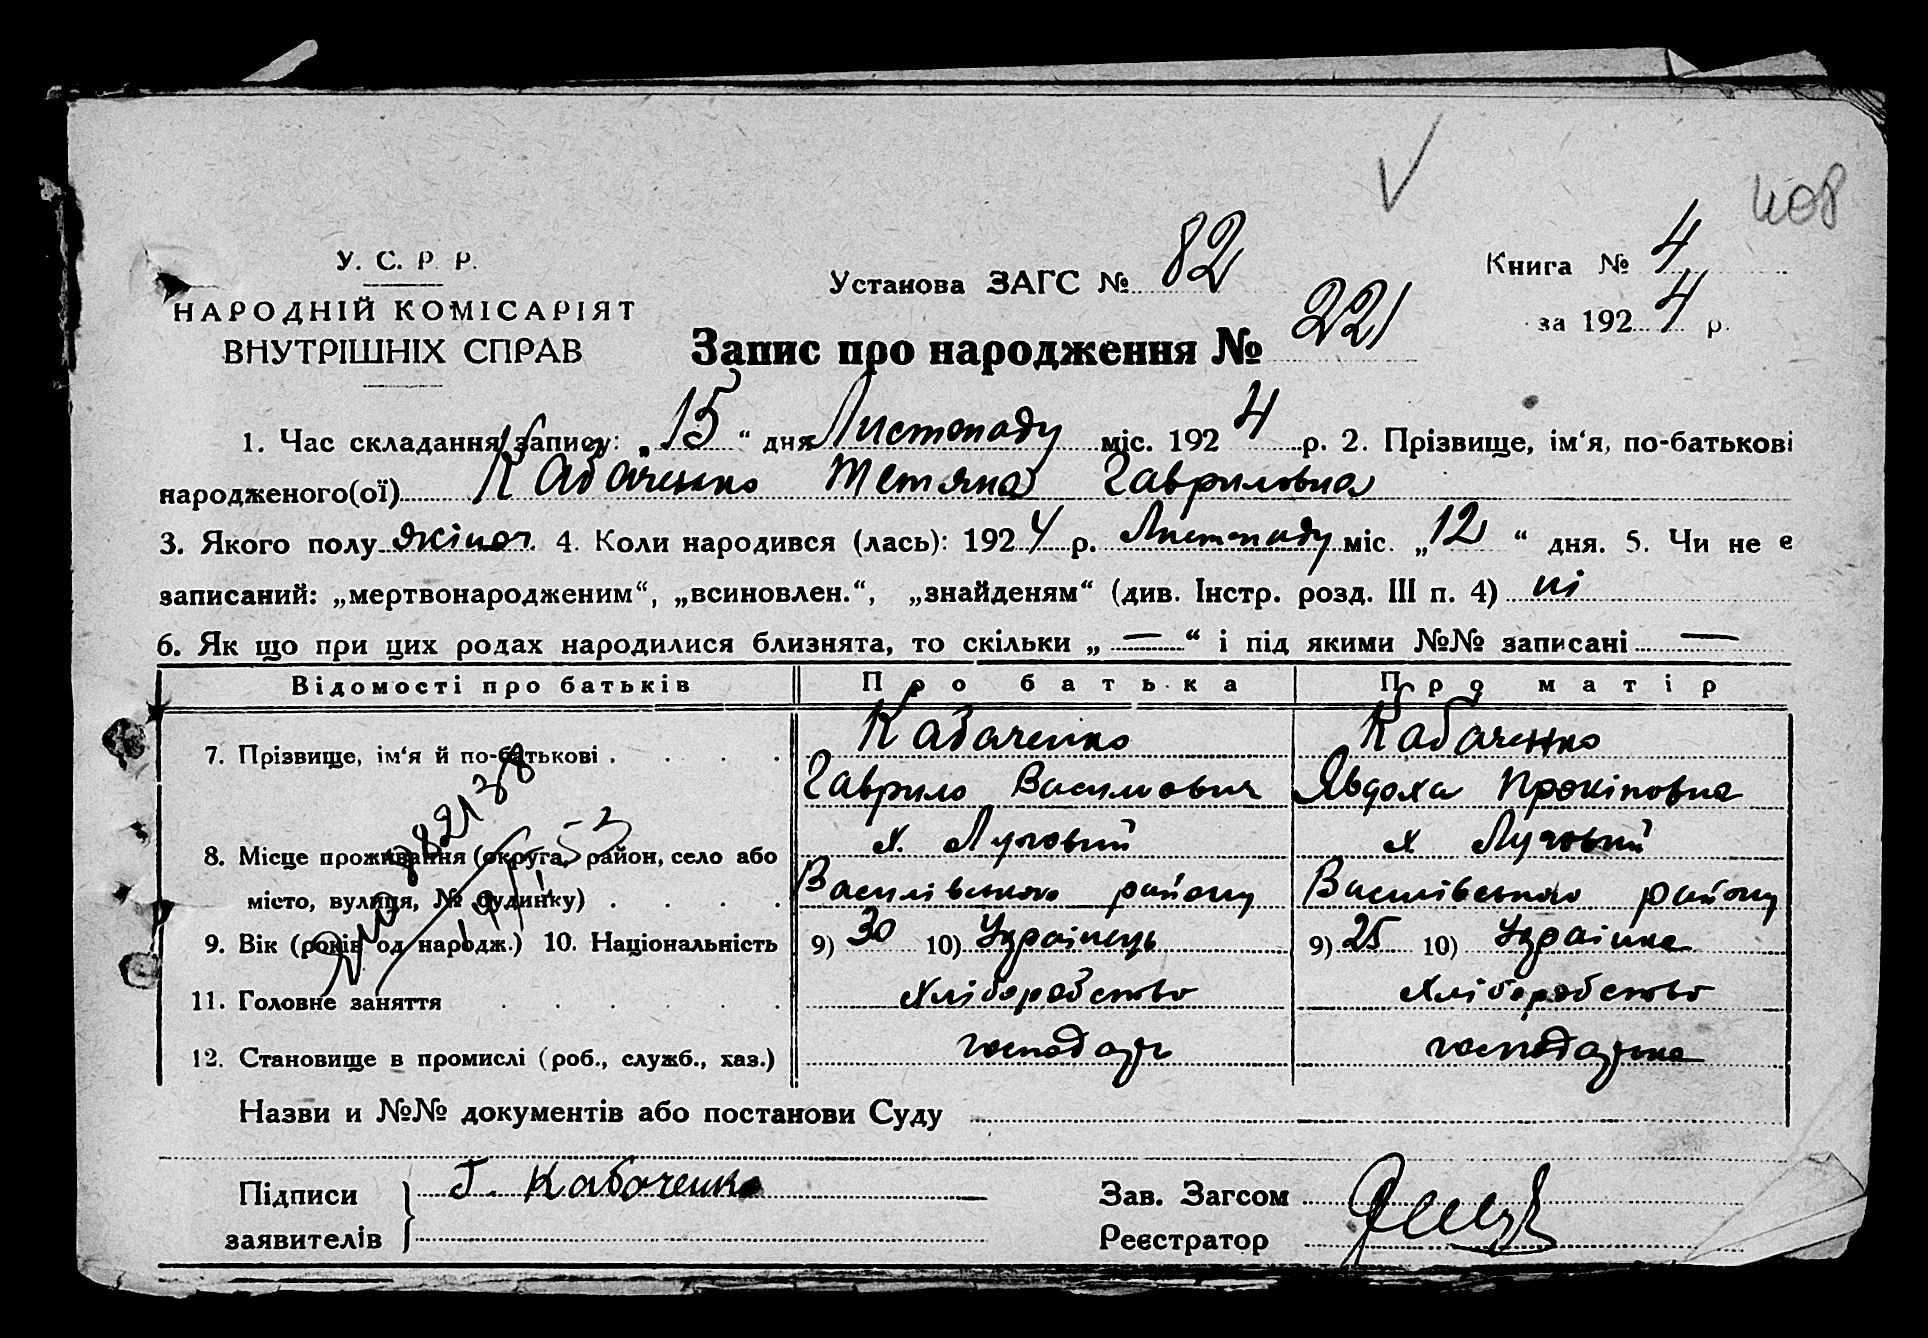 408
У. С. Р. Р.
НАРОДНІЙ КОМІСАРІЯТ
ВНУТРІШНІХ СПРАВ
Установа ЗАГС № 82
Книга № 4
за 1924 р.
Запис про народження № 221
1. Час складання запису: „15“ дня Листопаду міс. 1924 р. 2. Прізвище, ім‘я, по-батькові
народженого(ої) Кабаченко Тетяна Гавриловна
3. Якого полу жіноч. 4. Коли народився (лась): 1924 р. Листопаду міс. „12“ дня. 5. Чи не є
записаний: „мертвонародженим“, „всиновлен.“, „знайденям“ (див. Інстр. розд. III п. 4) ні
6. Як що при цих родах народилися близнята, то скільки „—“ і під якими №№ записані —
Відомості про батьків Про батька Про матір
7. Прізвище, ім‘я й по-батькові Кабаченко Кабаченко
Гаврило Василович Явдоха Прокіповна
8. Місце проживання (округа, район, село або х. Луговий х. Луговий
місто, вулиця, № будинку) Василівського району Василівського району
9. Вік (років од народж.) 10. Національність 9) 30 10) Українець 9) 25 10) Українка
11. Головне заняття Хліборобство Хліборобство
12. Становище в промислі (роб., служб., хаз.) господарь господарька
Назви и №№ документів або постанови Суду
Підписи Г. Кабаченко Зав. Загсом
заявителів Реєстратор